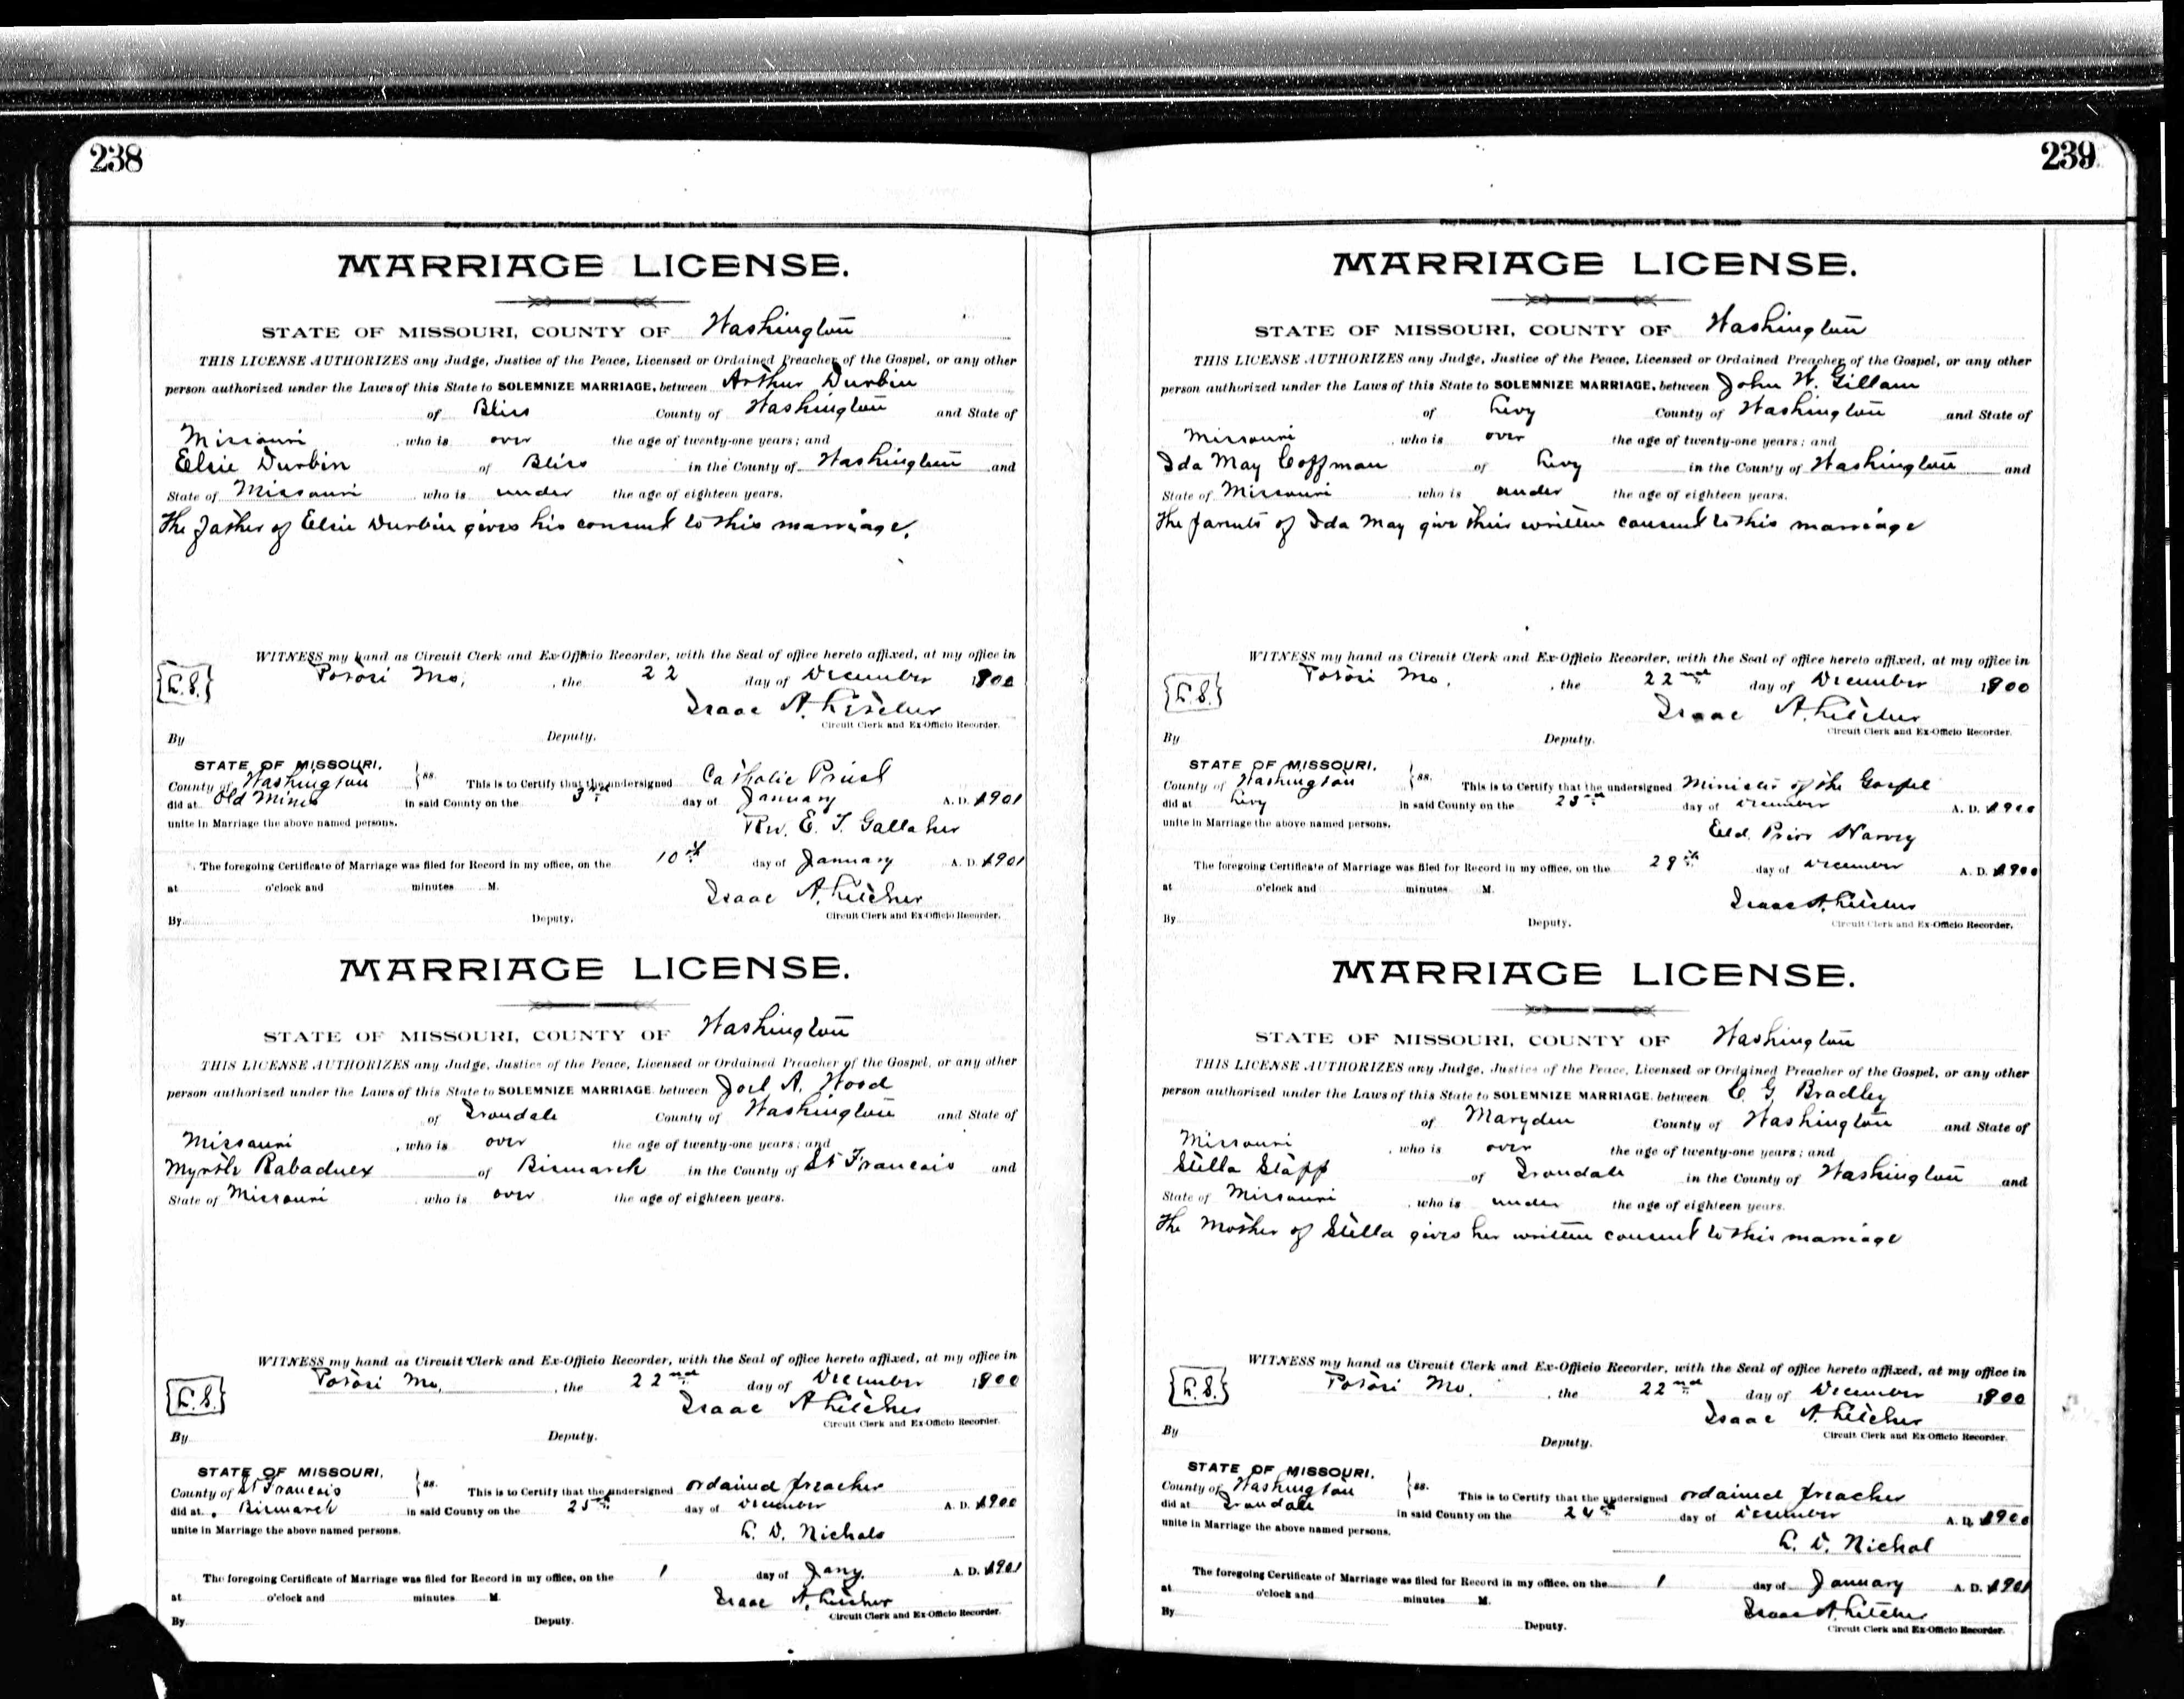 238
MARRIAGE LICENSE.
STATE OF MISSOURI, COUNTY OF Washington
THIS LICENSE AUTHORIZES any Judge, Justice of the Peace, Licensed or Ordained Preacher of the Gospel, or any other
person authorized under the Laws of this State to SOLEMNIZE MARRIAGE, between Arthur Durbin
of Bliss County of Washington and State of
Missouri, who is over the age of twenty-one years; and
Elsie Durbin of Bliss in the County of Washington and
State of Missouri, who is under the age of eighteen years.
The father of Elsie Durbin gives his consent to this marriage.
WITNESS my hand as Circuit Clerk and Ex-Officio Recorder, with the Seal of office hereto affixed, at my office in
{L.S.} Potosi Mo, the 22 day of December 1900
Isaac A. Letcher
Circuit Clerk and Ex-Officio Recorder.
By Deputy.
STATE OF MISSOURI,
County of Washington ss. This is to Certify that the undersigned Catholic Priest
did at Old Mines in said County on the day of January A. D. 1901
unite in Marriage the above named persons.
Rev. E. J. Gallaher
The foregoing Certificate of Marriage was filed for Record in my office, on the 10th day of January A. D. 1901
at o'clock and minutes M.
Isaac A. Letcher
By Deputy. Circuit Clerk and Ex-Officio Recorder.
MARRIAGE LICENSE.
STATE OF MISSOURI, COUNTY OF Washington
THIS LICENSE AUTHORIZES any Judge, Justice of the Peace, Licensed or Ordained Preacher of the Gospel, or any other
person authorized under the Laws of this State to SOLEMNIZE MARRIAGE, between Joel A. Wood
of Irondale County of Washington and State of
Missouri, who is over the age of twenty-one years; and
Myrtle Rabaduex of Bismarck in the County of St Francois and
State of Missouri, who is over the age of eighteen years.
WITNESS my hand as Circuit Clerk and Ex-Officio Recorder, with the Seal of office hereto affixed, at my office in
{L.S.} Potosi Mo, the 22nd day of December 1900
Isaac A Letcher
Circuit Clerk and Ex-Officio Recorder.
By Deputy.
STATE OF MISSOURI,
County of St Francois ss. This is to Certify that the undersigned ordained preacher
did at Bismarck in said County on the 25th day of December A. D. 1900
unite in Marriage the above named persons.
L. D. Nichols
The foregoing Certificate of Marriage was filed for Record in my office, on the 1 day of Jany A. D. 1901
at o'clock and minutes M.
Isaac A. Letcher
By Deputy. Circuit Clerk and Ex-Officio Recorder.
239
MARRIAGE LICENSE.
STATE OF MISSOURI, COUNTY OF Washington
THIS LICENSE AUTHORIZES any Judge, Justice of the Peace, Licensed or Ordained Preacher of the Gospel, or any other
person authorized under the Laws of this State to SOLEMNIZE MARRIAGE, between John W. Gillam
of Levy County of Washington and State of
Missouri, who is over the age of twenty-one years; and
Ida May Coffman of Levy in the County of Washington and
State of Missouri, who is under the age of eighteen years.
The parents of Ida May give their written consent to this marriage
WITNESS my hand as Circuit Clerk and Ex-Officio Recorder, with the Seal of office hereto affixed, at my office in
{L.S.} Potosi Mo, the 22nd day of December 1900
Isaac A. Letcher
Circuit Clerk and Ex-Officio Recorder.
By Deputy.
STATE OF MISSOURI,
County of Washington ss. This is to Certify that the undersigned Minister of the Gospel
did at Levy in said County on the day of December A. D. 1900
unite in Marriage the above named persons.
Eld. Prior Harvey
The foregoing Certificate of Marriage was filed for Record in my office, on the 29th day of December A. D. 1900
at o'clock and minutes M.
Isaac A. Letcher
By Deputy. Circuit Clerk and Ex-Officio Recorder.
MARRIAGE LICENSE.
STATE OF MISSOURI, COUNTY OF Washington
THIS LICENSE AUTHORIZES any Judge, Justice of the Peace, Licensed or Ordained Preacher of the Gospel, or any other
person authorized under the Laws of this State to SOLEMNIZE MARRIAGE, between C. G. Bradley
of Maryden County of Washington and State of
Missouri, who is over the age of twenty-one years; and
Stella Stapp of Irondale in the County of Washington and
State of Missouri, who is under the age of eighteen years.
The Mother of Stella gives her written consent to this marriage
WITNESS my hand as Circuit Clerk and Ex-Officio Recorder, with the Seal of office hereto affixed, at my office in
{L.S.} Potosi Mo. the 22nd day of December 1900
Isaac A. Letcher
Circuit Clerk and Ex-Officio Recorder.
By Deputy.
STATE OF MISSOURI,
County of Washington ss. This is to Certify that the undersigned ordained preacher
did at Irondale in said County on the 24th day of December A. D. 1900
unite in Marriage the above named persons.
L. D. Nichol
The foregoing Certificate of Marriage was filed for Record in my office, on the 1 day of January A. D. 1901
at o'clock and minutes M.
Isaac A. Letcher
By Deputy. Circuit Clerk and Ex-Officio Recorder.